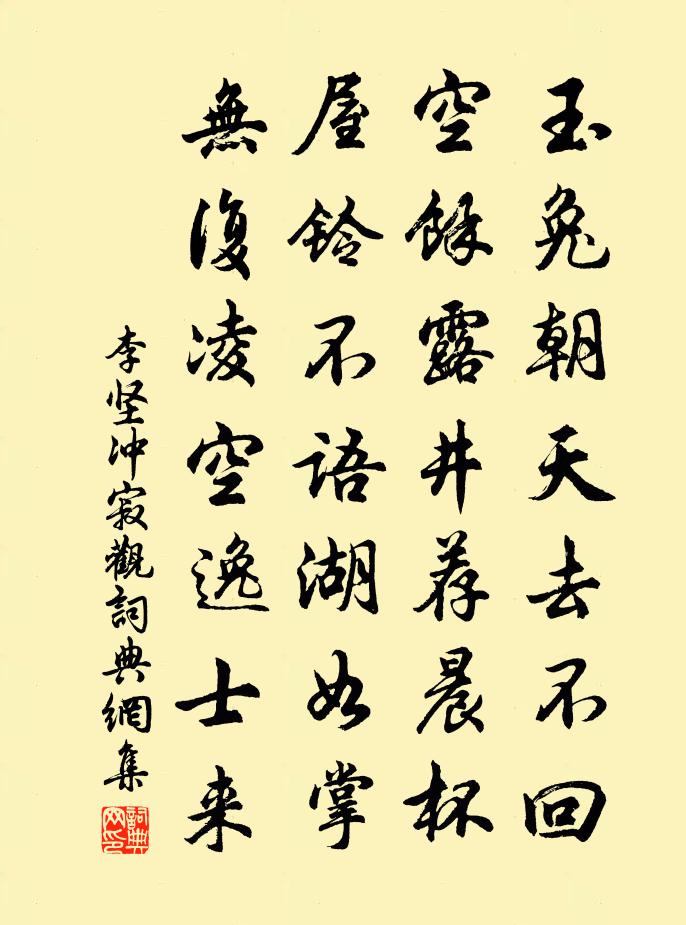 玉兔朝天去不回
空餘露井荐晨杯
屋鈴不語湖如掌
無復凌空逸士来
李坚冲寂觀詞典網集
詞典网印